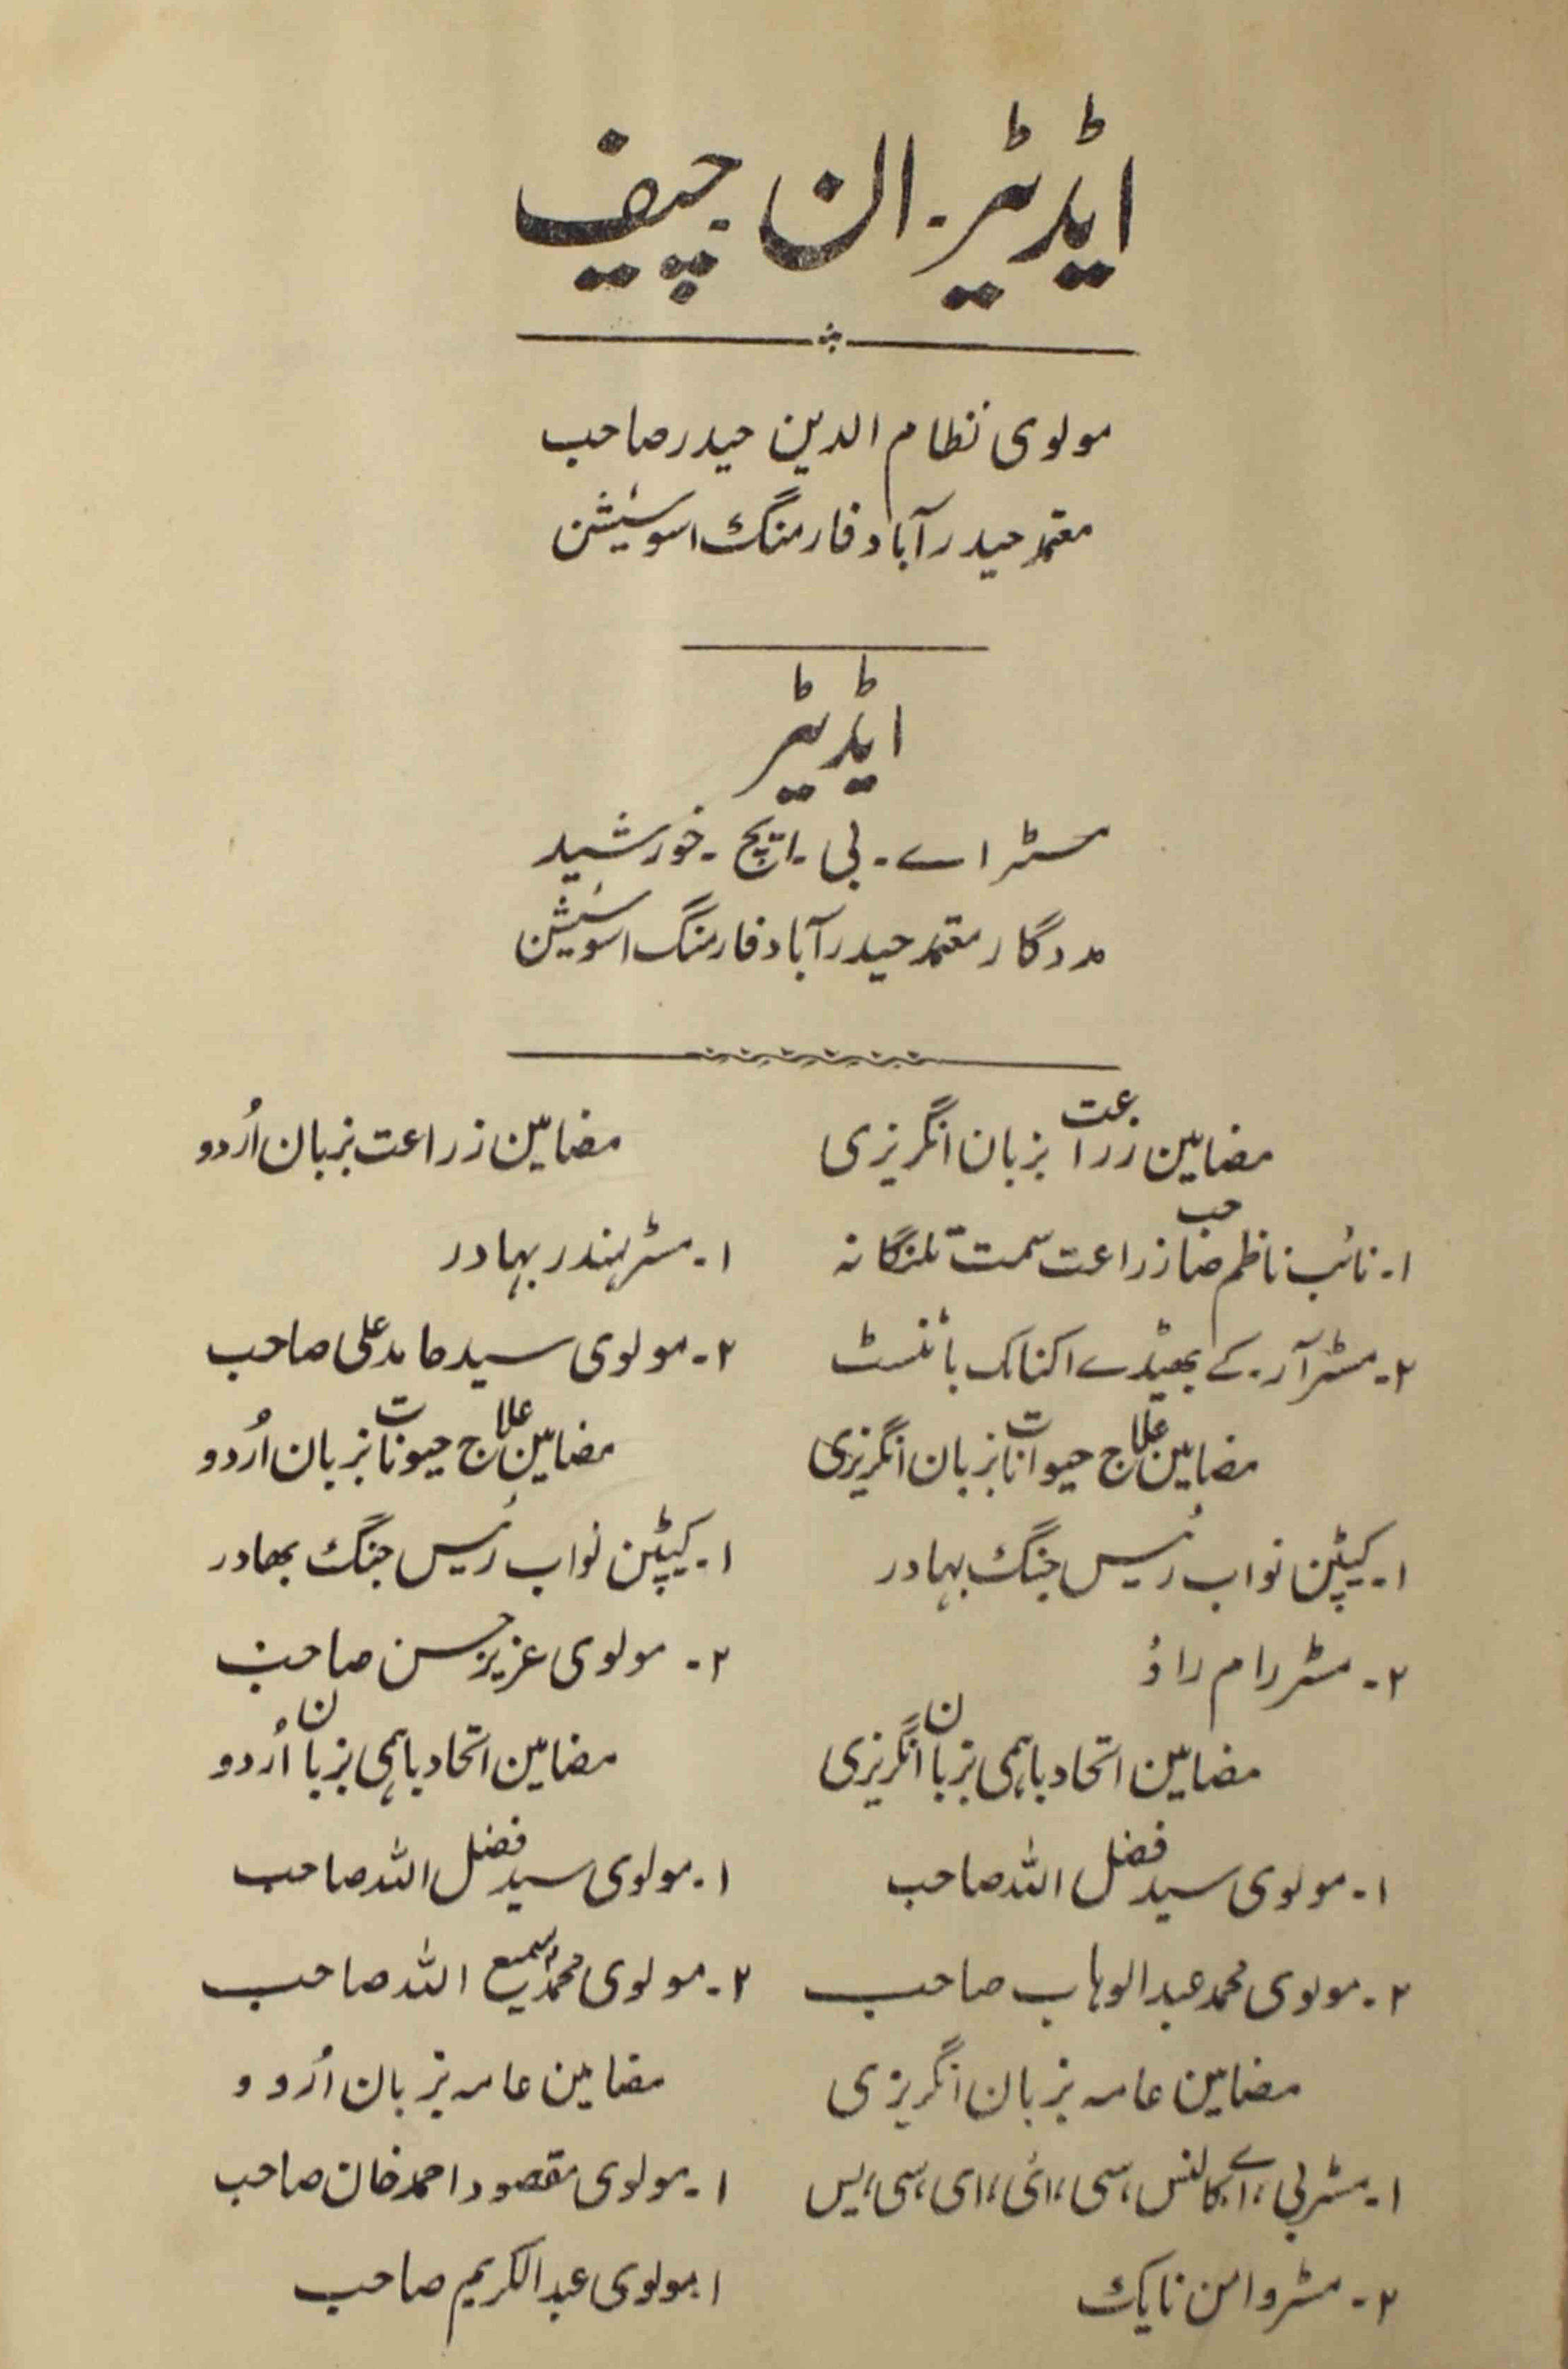 ایڈیٹر۔ ان چیف
مولوی نظام الدین حیدر صاحب
معتمد حیدرآباد فارمنگ اسوسیئشن
ایڈیٹر
مسٹر اے۔ بی۔ ایچ۔ خورشید
مددگار معتمد حیدرآباد فارمنگ اسوسیئشن
مضامین زراعت بزبان انگریزی
۱۔ نائب ناظم صاحب زراعت سمت تلنگانہ
۲۔ مسٹر آر۔ کے بھیڈے اکنامک باٹنسٹ
مضامین علاج حیوانات بزبان انگریزی
۱۔ کیپٹن نواب رئیس جنگ بہادر
۲۔ مسٹر رام راؤ
مضامین اتحاد باہمی بزبان انگریزی
۱۔ مولوی سید فضل اللہ صاحب
۲۔ مولوی محمد عبدالوہاب صاحب
مضامین عامہ بزبان انگریزی
۱۔ مسٹر بی، اے، کالنس، سی، ائی، ای، سی، یس
۲۔ مسٹر وامن نایک
مضامین زراعت بزبان اُردو
۱۔ مسٹر ہندر بہادر
۲۔ مولوی سید حامد علی صاحب
مضامین علاج حیونات بزبان اُردو
۱۔ کیپٹن نواب رئیس جنگ بھادر
۲۔ مولوی عزیز حسن صاحب
مضامین اتحاد باہمی بزبان اُردو
۱۔ مولوی سید فضل اللہ صاحب
۲۔ مولوی محمد سمیع اللہ صاحب
مضامین عامہ بزبان اُردو
۱۔ مولوی مقصود احمد خان صاحب
۱۔ مولوی عبدالکریم صاحب